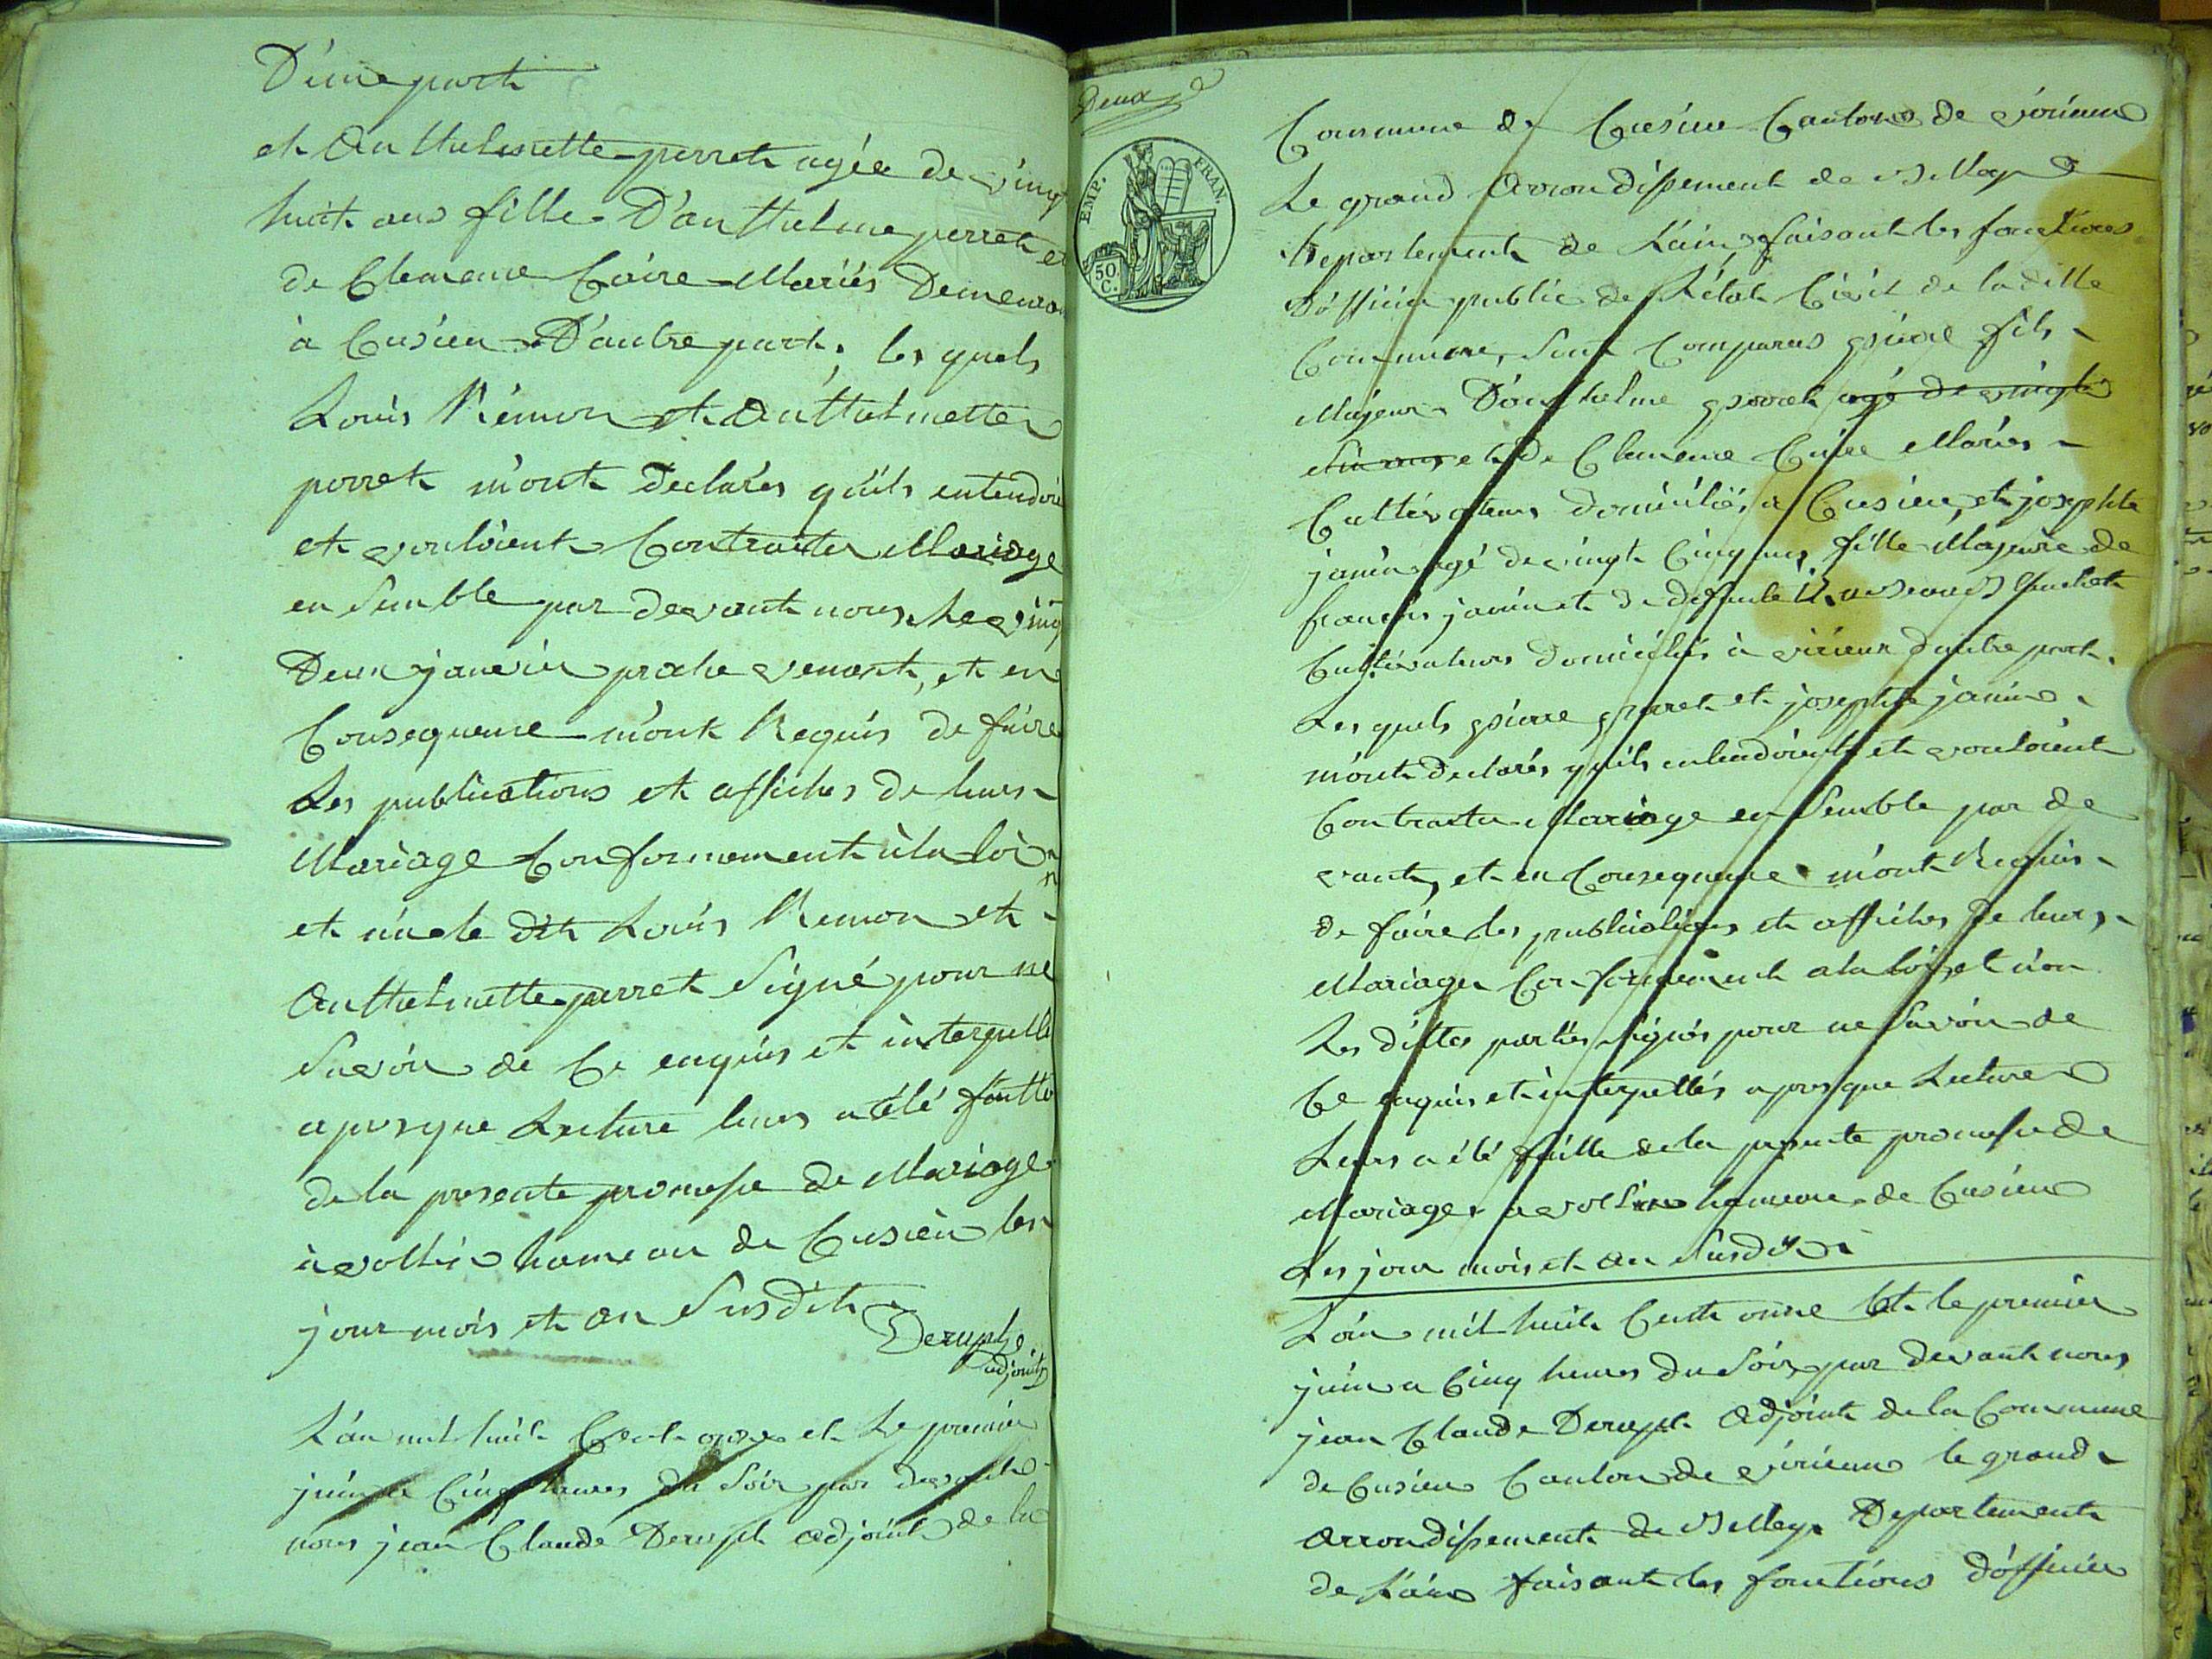 D'une part
et Anthelmette perret agée de vingt
huit ans fille D'anthelme perret et
de Clemence Caire Mariés Demeuran
à Cusieu D'autre part, les quels
Louis Rémon et Anthelmette
perret m'ont declarés qu'ils entendoie
et vouloient Contracter Mariage
en Semble par devant nous, le vingt
Deux janvier proche venant, et en
Consequence m'ont Requis de faire
Les publications et affiches de leurs
Mariage Conformement à la loi
et n'a le dit Louis Remon et
Anthelmette perret Signé pour ne
Savoir de Ce enquis et interpellé
apres que Lecture leurs a été faitte
de la presente promesse de Mariage
à hameau de Cusieu les
jour mois et an Susdit
Derupt
adjoint
L'an mil huit Cent onze et Le premier
juin a Cinq heures du Soir par devant
nous jean Claude Derupt adjoint de la
Deux
EMP. FRAN.
50
C.
Commune de Cusieu Canton de virieux
Le grand Arrondissement de Belley
Departement de L'ain, faisant les fonctions
D'officier public de L'état Civil de la ditte
Commune, Sont Comparus pierre fils
Majeur D'anthelme perret agé de vingt
six ans et de Clemence Caire Mariés
Cultivateurs domiciliés a Cusieu, et josephte
janin agé de vingt Cinq ans, fille Majeure de
francois janin et de defunte
Cultivateurs domiciliés à virieux d'autre part.
Les quels pierre perret et josephte janin
m'ont declarés qu'ils entendoient et vouloient
Contracter Mariage en Semble par de
vant, et en Consequence m'ont Requis
de faire les publications et affiches de leurs
Mariages Conformement a la loi, et n'on
Les dittes parties Signés pour ne Savoir de
Ce enquis et interpellés apres que Lecture
Leurs a été faitte de la presente promesse de
Mariage a hameau de Cusieu
Les jour mois et an Susdit
L'an mil huit Cent onze Et le premier
juin a Cinq heures du Soir, par devant nous
jean Claude Derupt Adjoint de la Commune
de Cusieu Canton de virieux le grand
Arrondissement de Belley Departement
de L'ain faisant les fonctions d'officier